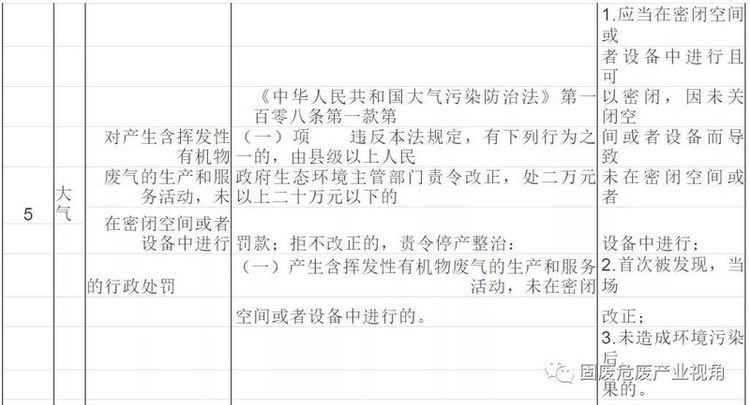 5
大
气
对产生含挥发性
有机物
废气的生产和服
务活动，未
在密闭空间或者
设备中进行
的行政处罚
《中华人民共和国大气污染防治法》第一
百零八条第一款第
（一）项 违反本法规定，有下列行为之
一的，由县级以上人民
政府生态环境主管部门责令改正，处二万元
以上二十万元以下的
罚款；拒不改正的，责令停产整治：
（一）产生含挥发性有机物废气的生产和服务
活动，未在密闭
空间或者设备中进行的。
1.应当在密闭空间
或
者设备中进行且
可
以密闭，因未关
闭空
间或者设备而导
致
未在密闭空间或
者
设备中进行；
2.首次被发现，当
场
改正；
3.未造成环境污染
后
果的。
固废危废产业视角